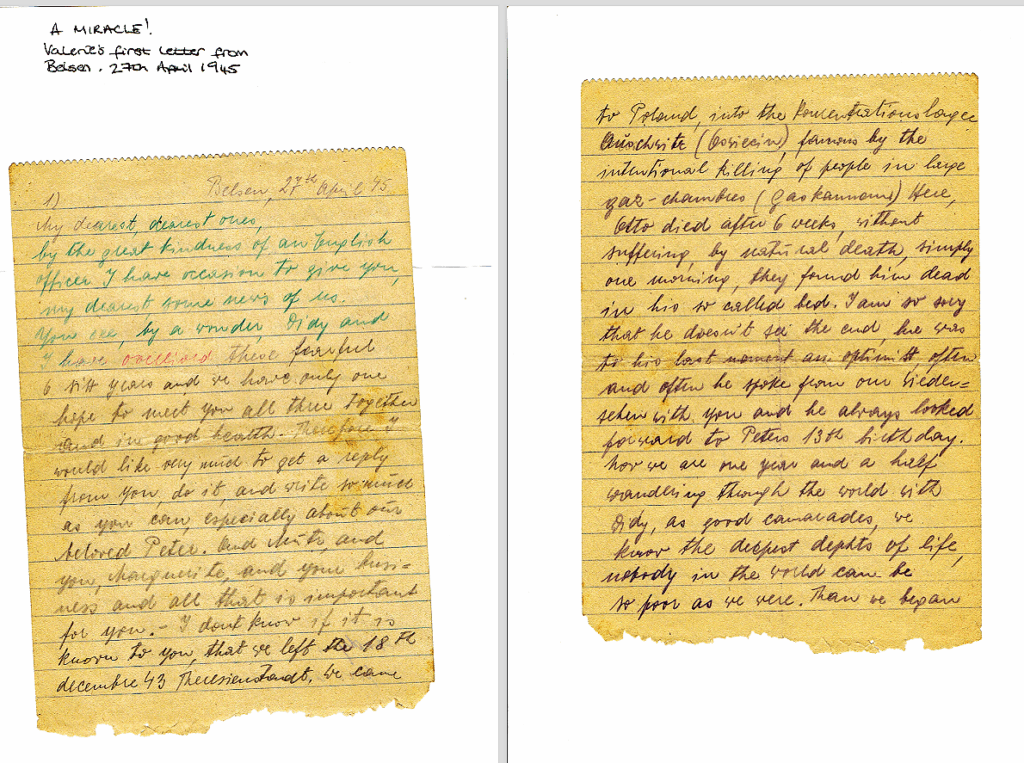 A MIRACLE!
Valerie's first letter from
Belsen. 27th April 1945
1)
Belsen, 27th April 45.
My dearest, dearest ones,
by the great kindness of an English
officer I have occasion to give you,
my dearest some news of us.
You see, by a wonder, Didy and
I have overlived these fearful
6 years and we have only one
hope to meet you all three together
and in good health. Therefore I
would like very much to get a reply
from you, do it and write so much
as you can, especially about our
beloved Peter. And Mutz, and
you, Marguerite, and your busi-
ness and all that is important
for you. - I dont know if it is
known to you, that we left the 18th
decembre 43 Theresienstadt. We came
to Poland, into the Konzentrationslager
(Oswiecim), famous by the
intentional killing of people in large
gaz-chambres (Gaskammern) Here,
Otto died after 6 weeks, without
suffering, by natural death, simply
one morning, they found him dead
in his so called bed. I am so sorry
that he doesn't see the end, he was
to his last moment an optimist often
and often he spoke from our Wieder=
sehen with you and he always looked
forward to Peters 13th birthday.
Now we are one year and a half
wandering through the world with
Didy, as good camarades, we
know the deepest dephts of life,
nobody in the world can be
so poor as we were. Than we began